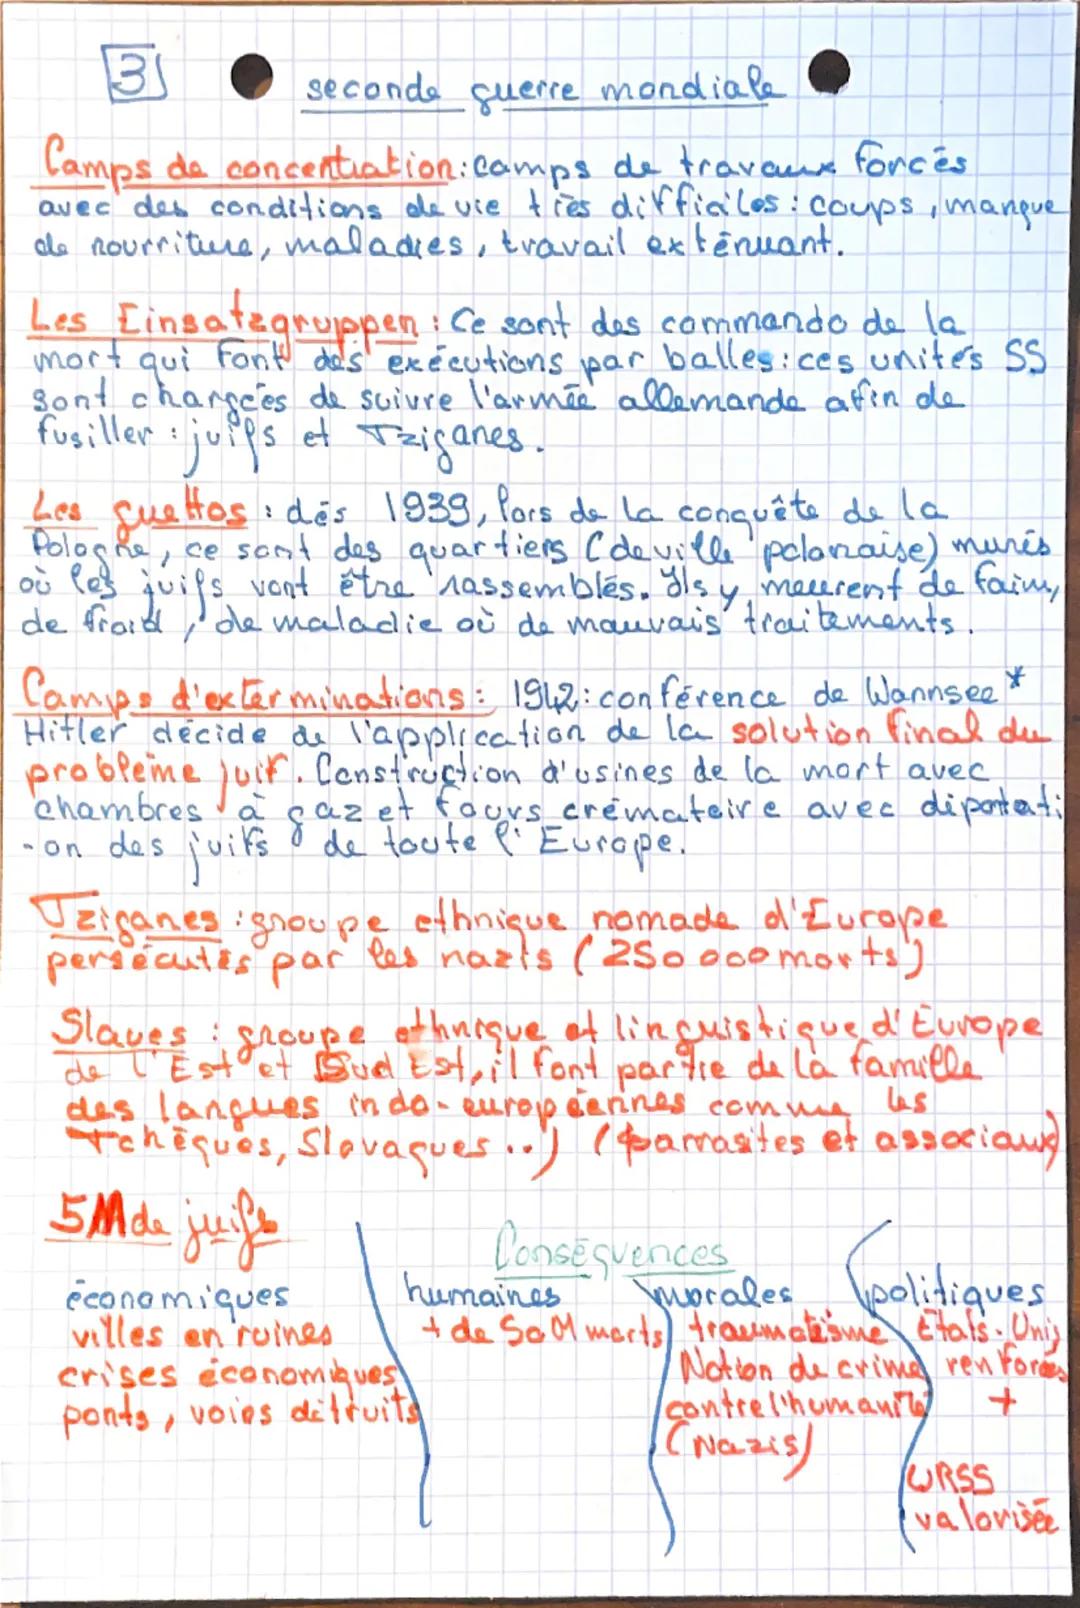 3
seconde guerre mondiale
Camps de concentration : camps de travaux forcés
avec des conditions de vie très difficiles : coups, manque
de nourriture, maladies, travail exténuant.
Les Einsatzgruppen : Ce sont des commando de la
mort qui font des exécutions par balles : ces unités SS
sont chargées de suivre l'armée allemande afin de
fusiller : juifs et Tziganes.
Les guettos : dés 1939, lors de la conquête de la
Pologne, ce sont des quartiers (de ville polonaise) murés
où les juifs vont être rassemblés. Ils y meurent de faim,
de froid, de maladie où de mauvais traitements.
Camps d'exterminations : 1942 : conférence de Wannsee *
Hitler décide de l'application de la solution final du
probleme juif. Construction d'usines de la mort avec
chambres à gaz et fours crématoire avec déportati
-on des juifs de toute l'Europe.
Tziganes : groupe ethnique nomade d'Europe
persécutés par les nazis (250 000 morts)
Slaves : groupe ethnique et linguistique d'Europe
de l'Est et Sud Est, il font partie de la famille
des langues indo-européennes comme les
Tchèques, Slovaques ..) (parrasites et associaux)
5M de juifs
Conséquences
économiques humaines morales politiques
villes en ruines + de 50M morts traumatisme États-Unis
crises économiques Notion de crime renforcés
ponts, voies détruits contre l'humanité +
(Nazis)
URSS
valorisée